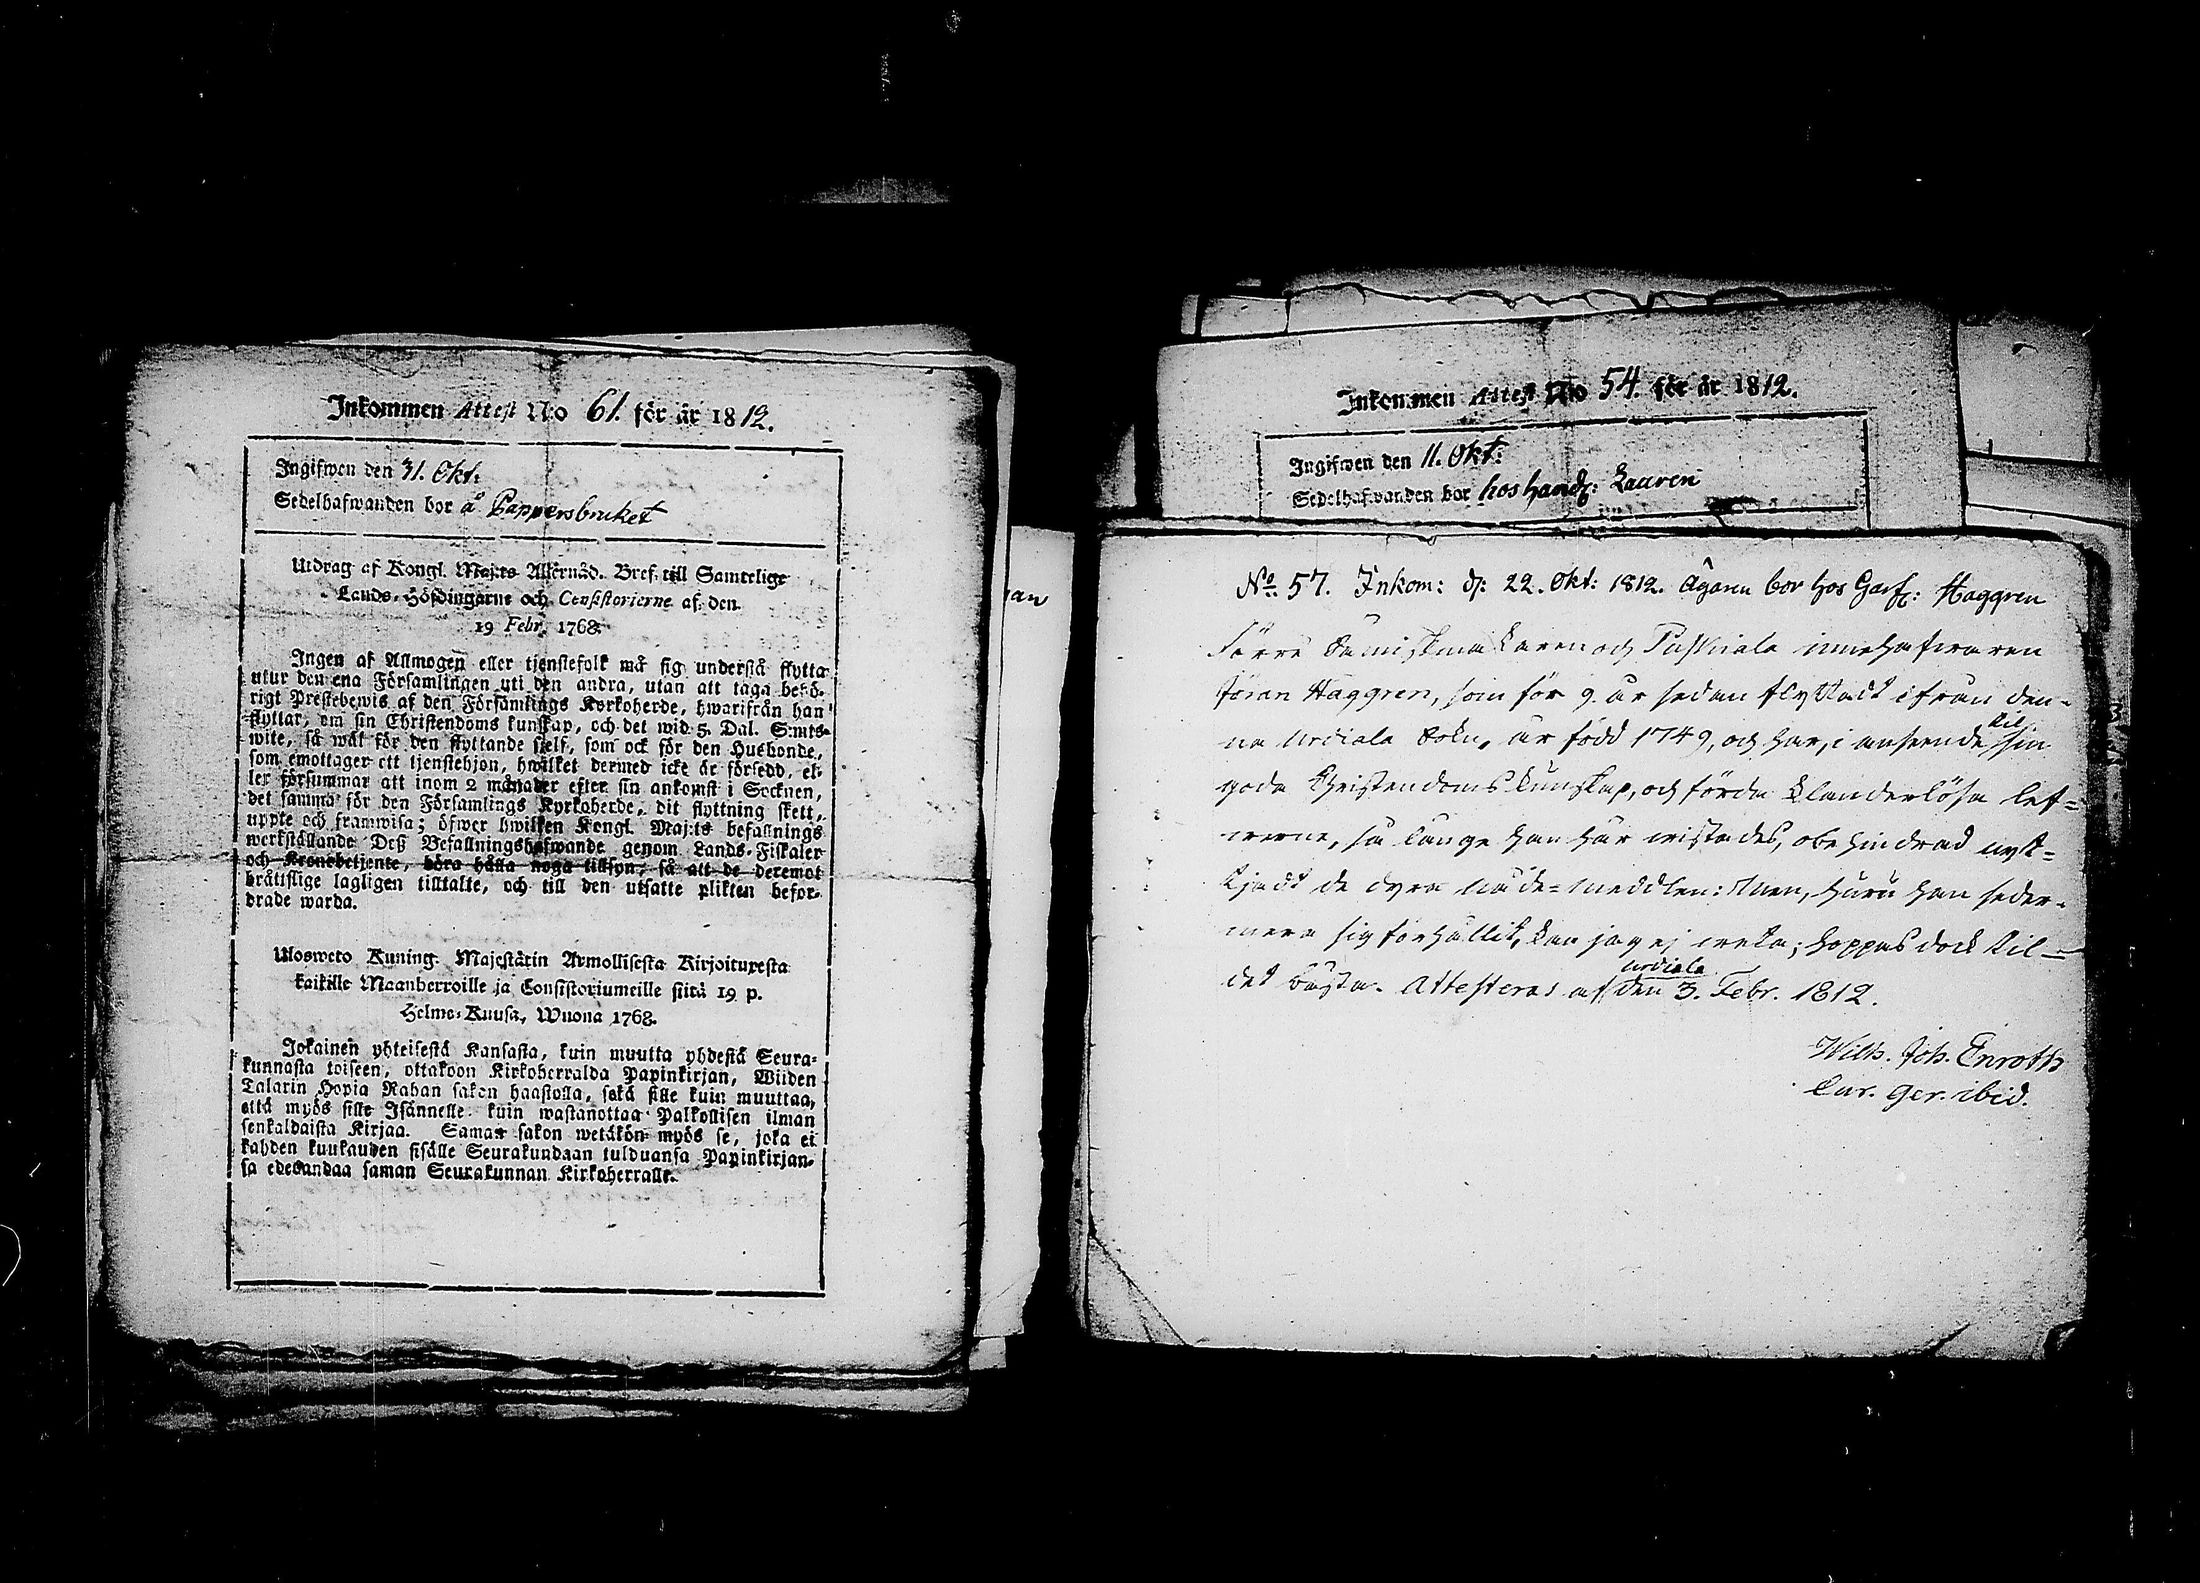 Inkommen Attest N:o 61. för år 1812.
Ingifwen den 31. Okt:
Sedelhafwanden bor å Pappersbruket
Utdrag af Kongl. Maj:ts Allernåd. Bref till Samtelige
Lands-Höfdingarne och Consistorierne af den
19 Febr. 1768.
Ingen af Allmogen eller tjenstefolk må sig understå flytta
utur den ena Församlingen uti den andra, utan att taga behö-
rigt Prestebewis af den Församlings Kyrkoherde, hwarifrån han
flyttar, om sin Christendoms kunskap, och det wid 5. Dal. S:mts
wite, så wäl för den flyttande sjelf, som ock för den Husbonde,
som emottager ett tjenstehjon, hwilket dermed icke är försedd, el-
ler försummar att inom 2 månader efter sin ankomst i Socknen,
det samma för den Församlings Kyrkoherde, dit flyttning skett,
uppte och framwisa; öfwer hwilken Kongl. Maj:ts befallnings
werkställande Deß Befallningshafwande genom Lands-Fiskaler
och Kronobetjente, böra hålla noga tillsyn, så att de deremot
brättslige lagligen tilltalte, och till den utsatte plikten befor-
drade warda.
Ulosweto Kuning. Majestätin Armollisesta Kirjoituxesta
kaikille Maanherroille ja Consistoriumeille siitä 19 p.
Helme-Kuusa, Wuona 1768.
Jokainen yhteisestä Kansasta, kuin muutta yhdestä Seura-
kunnasta toiseen, ottakoon Kirkoherralda Papinkirjan, Wiiden
Talarin Hopia Rahan sakon haastolla, sekä sille kuin muuttaa,
että myös sille Isännelle kuin wastanottaa Palkollisen ilman
senkaldaista Kirjaa. Saman sakon wetäkön myös se, joka ei
kahden kuukauden sisälle Seurakundaan tulduansa Papinkirjan-
sa edesandaa saman Seurakunnan Kirkoherralle.
Inkommen Attest N:o 54. för år 1812.
Ingifwen den 11. Okt:
Sedelhafwanden bor hos Handl: Lauren
No. 57. Inkom: d: 22. Okt: 1812. Ägaren bor hos Garf: Haggren
Förre Sämiskma karen och innehafwaren
Jöran Haggren, som för 9. år sedan flyttadt ifrån den-
na Urdiala Sokn, är född 1749, och har, i anseende til sin
goda Christendoms kunskap, och förda klanderlösa lef-
werne, så länge han här wistades, obehindrad nyt-
tjadt de dyra Nåde-meddlen: Men, huru han seder-
mera sig förhållit, kan jag ej weta; hoppas dock til
det bästa. Attesteras af Urdiala den 3. Febr. 1812.
Wilh. Joh. Enroth
Cur. Ger. ibid.